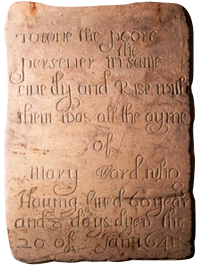 to love the poore
the
persever in same
live dy and Rise with
them was all the ayme
of
Mary Ward who
Having lived 60 year
and 8 days dyed the
20 of Jan 1645